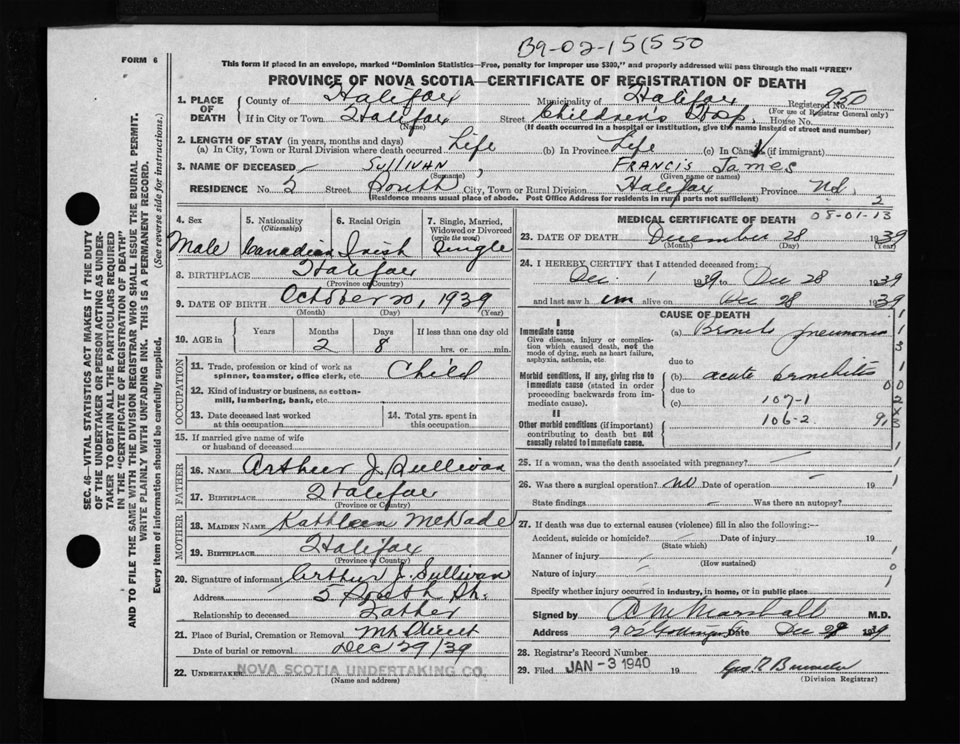 B9-02-151550
FORM 6
This form if placed in an envelope, marked "Dominion Statistics—Free, penalty for improper use $300," and properly addressed will pass through the mail "FREE"
PROVINCE OF NOVA SCOTIA—CERTIFICATE OF REGISTRATION OF DEATH
SEC. 46—VITAL STATISTICS ACT MAKES IT THE DUTY
OF THE UNDERTAKER OR PERSON ACTING AS UNDER-
TAKER TO OBTAIN ALL THE PARTICULARS REQUIRED
IN THE "CERTIFICATE OF REGISTRATION OF DEATH"
AND TO FILE THE SAME WITH THE DIVISION REGISTRAR WHO SHALL ISSUE THE BURIAL PERMIT.
WRITE PLAINLY WITH UNFADING INK. THIS IS A PERMANENT RECORD.
Every item of information should be carefully supplied. (See reverse side for instructions.)
1. PLACE OF DEATH County of Halifax Municipality of Halifax Registered No. 950
(For use of Registrar General only)
If in City or Town Halifax Street Children's Hosp. House No.
(Name) (If death occurred in a hospital or institution, give the name instead of street and number)
2. LENGTH OF STAY (in years, months and days)
(a) In City, Town or Rural Division where death occurred Life (b) In Province Life (c) In Canada (if immigrant)
3. NAME OF DECEASED SULLIVAN, FRANCIS James
(Surname) (Given name or names)
RESIDENCE No. 5 Street South City, Town or Rural Division Halifax Province N.S.
(Residence means usual place of abode. Post Office Address for residents in rural parts not sufficient) 2
4. Sex Male
5. Nationality (Citizenship) Canadian
6. Racial Origin Irish
7. Single, Married, Widowed or Divorced (write the word) Single
8. BIRTHPLACE Halifax
(Province or Country)
9. DATE OF BIRTH October 20, 1939
(Month) (Day) (Year)
10. AGE in Years Months 2 Days 8 If less than one day old hrs. or min.
OCCUPATION
11. Trade, profession or kind of work as spinner, teamster, office clerk, etc. Child
12. Kind of industry or business, as cotton-mill, lumbering, bank, etc.
13. Date deceased last worked at this occupation
14. Total yrs. spent in this occupation
15. If married give name of wife or husband of deceased
FATHER
16. NAME Arthur J Sullivan
17. BIRTHPLACE Halifax
(Province or Country)
MOTHER
18. MAIDEN NAME Kathleen McWade
19. BIRTHPLACE Halifax
(Province or Country)
20. Signature of informant Arthur J. Sullivan
Address 5 South St.
Relationship to deceased Father
21. Place of Burial, Cremation or Removal Mt Olivet
Date of burial or removal Dec 29/39
22. UNDERTAKER NOVA SCOTIA UNDERTAKING CO.
(Name and address)
MEDICAL CERTIFICATE OF DEATH 08-01-13
23. DATE OF DEATH December 28 1939
(Month) (Day) (Year)
24. I HEREBY CERTIFY that I attended deceased from:
Dec. 1 1939 to Dec 28 1939
and last saw h im alive on Dec 28 1939
CAUSE OF DEATH
I
Immediate cause
Give disease, injury or complication which caused death, not the mode of dying, such as heart failure, asphyxia, asthenia, etc.
(a) Broncho pneumonia
due to
Morbid conditions, if any, giving rise to immediate cause (stated in order proceeding backwards from immediate cause).
(b) acute bronchitis
due to
(c) 107-1
II
Other morbid conditions (if important) contributing to death but not causally related to immediate cause.
106-2
25. If a woman, was the death associated with pregnancy?
26. Was there a surgical operation? no Date of operation 19
State findings Was there an autopsy?
27. If death was due to external causes (violence) fill in also the following:—
Accident, suicide or homicide? Date of injury 19
(State which)
Manner of injury
(How sustained)
Nature of injury
Specify whether injury occurred in industry, in home, or in public place
Signed by M.D.
Address Date Dec 29 1939
28. Registrar's Record Number
29. Filed JAN -3 1940 19
(Division Registrar)